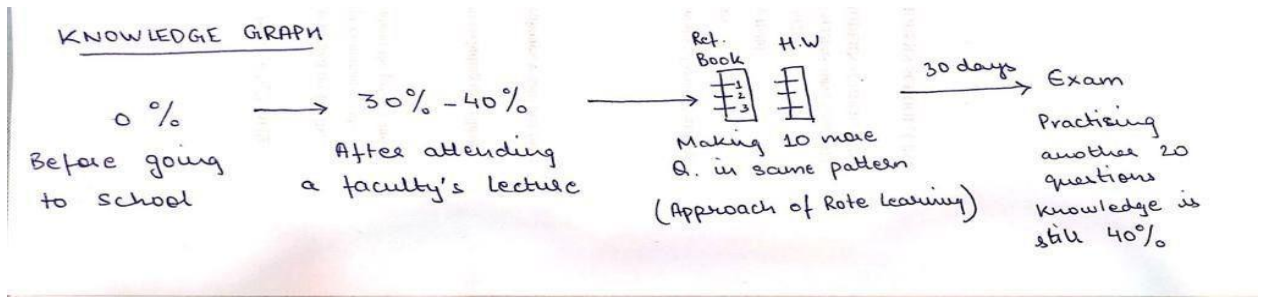 KNOWLEDGE GRAPH
0%
Before going
to school
30% - 40%
After attending
a faculty's lecture
Ref.
Book
1
2
3
H.W
Making 10 more
Q. in same pattern
(Approach of Rote learning)
30 days
Exam
Practising
another 20
questions
knowledge is
still 40%